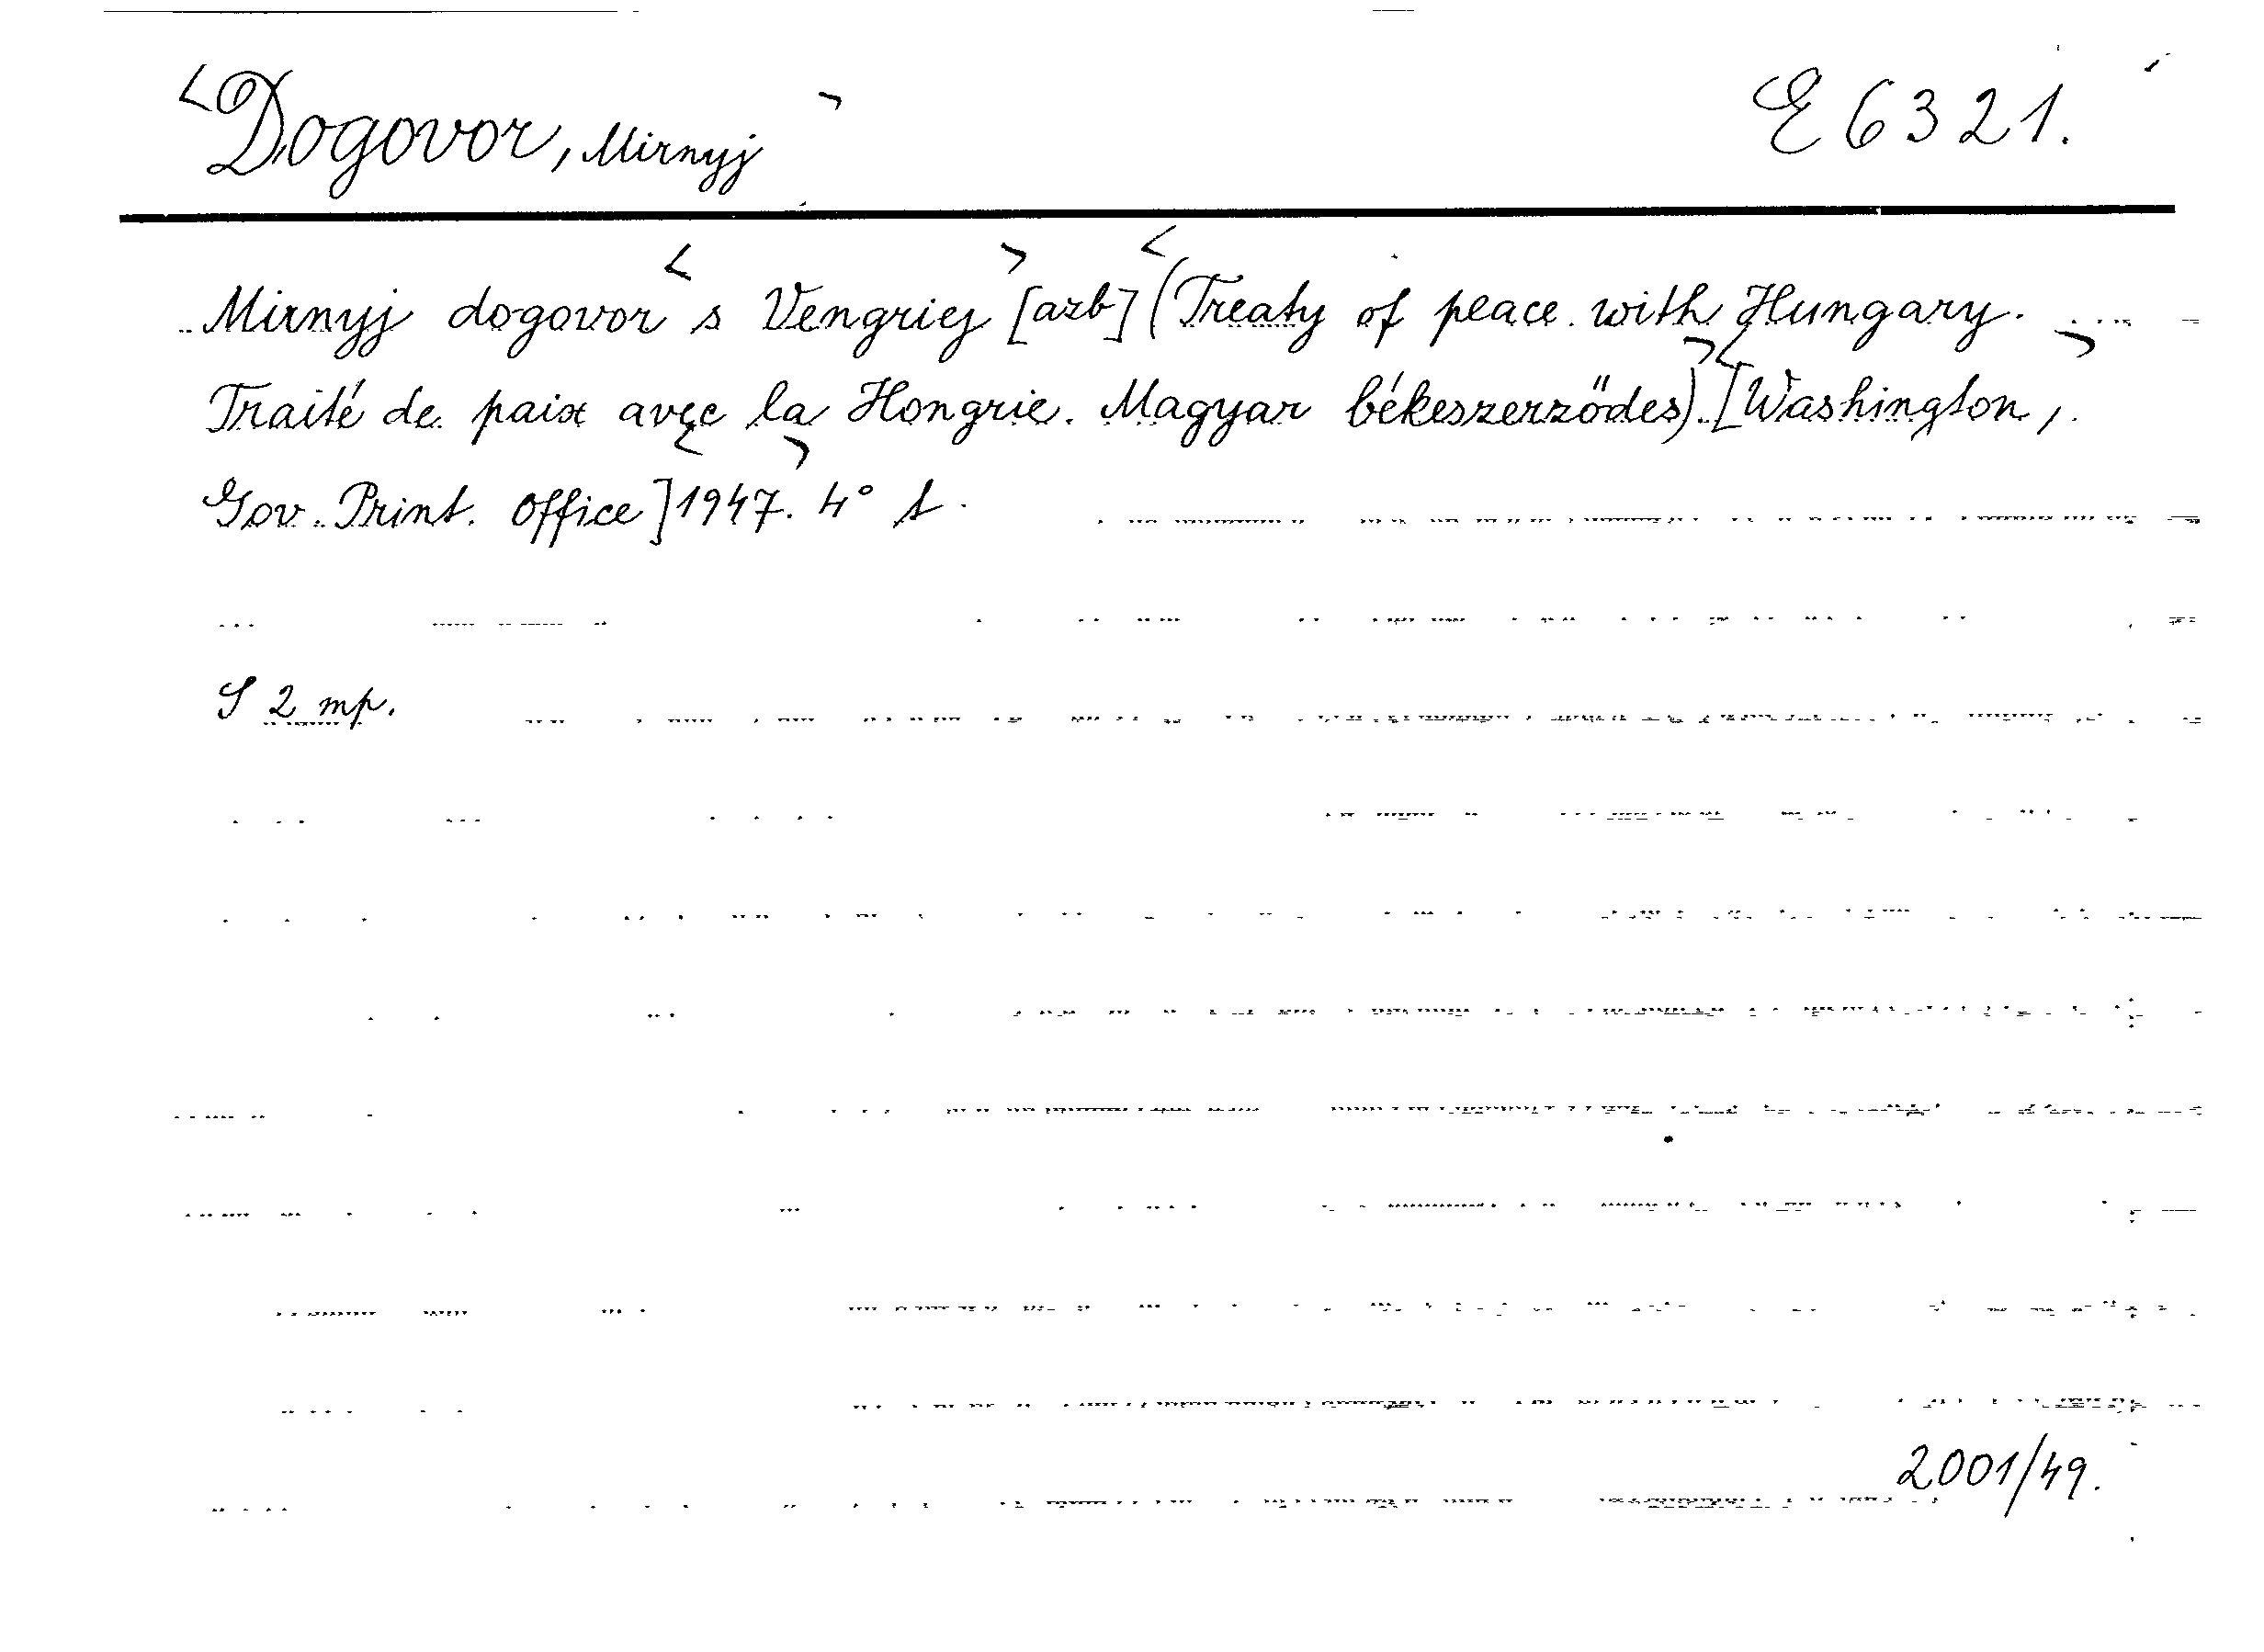 <Dogovor, Mirnyj> E 6321.
Mirnyj dogovor <s Vengriej> [azb] <(Treaty of peace with Hungary.
Traité de paix avec la Hongrie. Magyar békeszerződes).> <[Washington,>
<Gov. Print. Office]> 1947. 4° t.
S 2 mp.
2001/49.